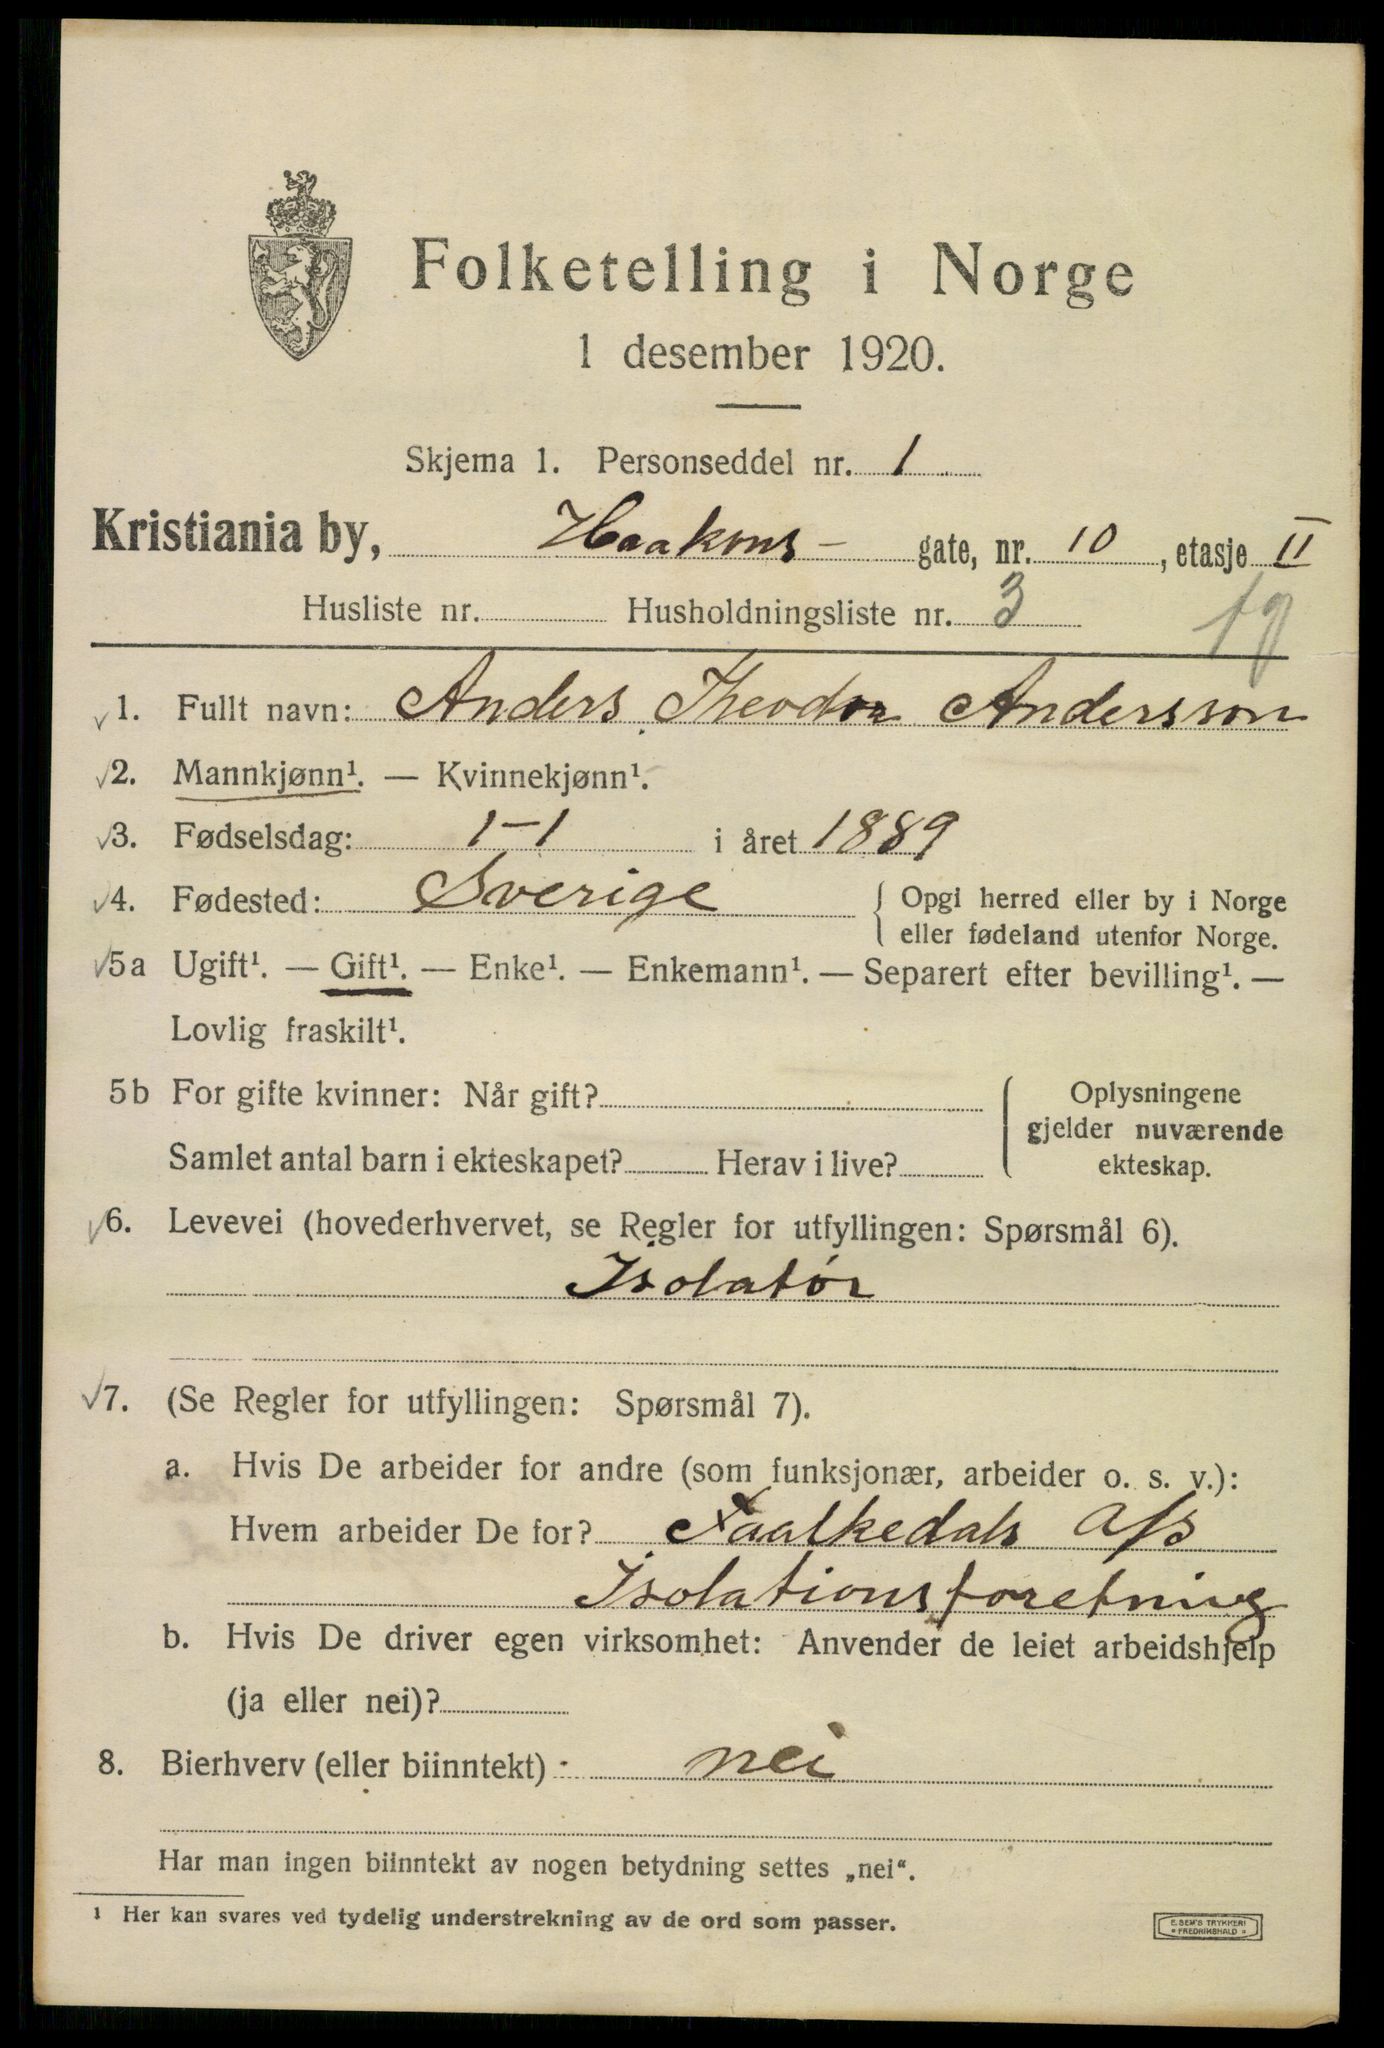 Folketelling i Norge
1 desember 1920.
Skjema 1. Personseddel nr. 1
Kristiania by, Haakons- gate, nr. 10, etasje II
Husliste nr. Husholdningsliste nr. 3
1. Fullt navn: Anders Theodor Andersson
2. Mannkjønn¹. — Kvinnekjønn¹.
3. Fødselsdag: 1-1 i året 1889
4. Fødested: Sverige { Opgi herred eller by i Norge
eller fødeland utenfor Norge.
5a Ugift¹. — Gift¹. — Enke¹. — Enkemann¹. — Separert efter bevilling¹. —
Lovlig fraskilt¹.
5b For gifte kvinner: Når gift? Oplysningene
gjelder nuværende
Samlet antal barn i ekteskapet? Herav i live? ekteskap.
6. Levevei (hovederhvervet, se Regler for utfyllingen: Spørsmål 6).
Isolatør
7. (Se Regler for utfyllingen: Spørsmål 7).
a. Hvis De arbeider for andre (som funksjonær, arbeider o. s. v.):
Hvem arbeider De for? Faalkedals A/S
Isolationsforetning
b. Hvis De driver egen virksomhet: Anvender de leiet arbeidshjelp
(ja eller nei)?
8. Bierhverv (eller biinntekt) : nei
Har man ingen biinntekt av nogen betydning settes „nei“.
¹ Her kan svares ved tydelig understrekning av de ord som passer.
E. SEM'S TRYKKERI
* FREDRIKSHALD *